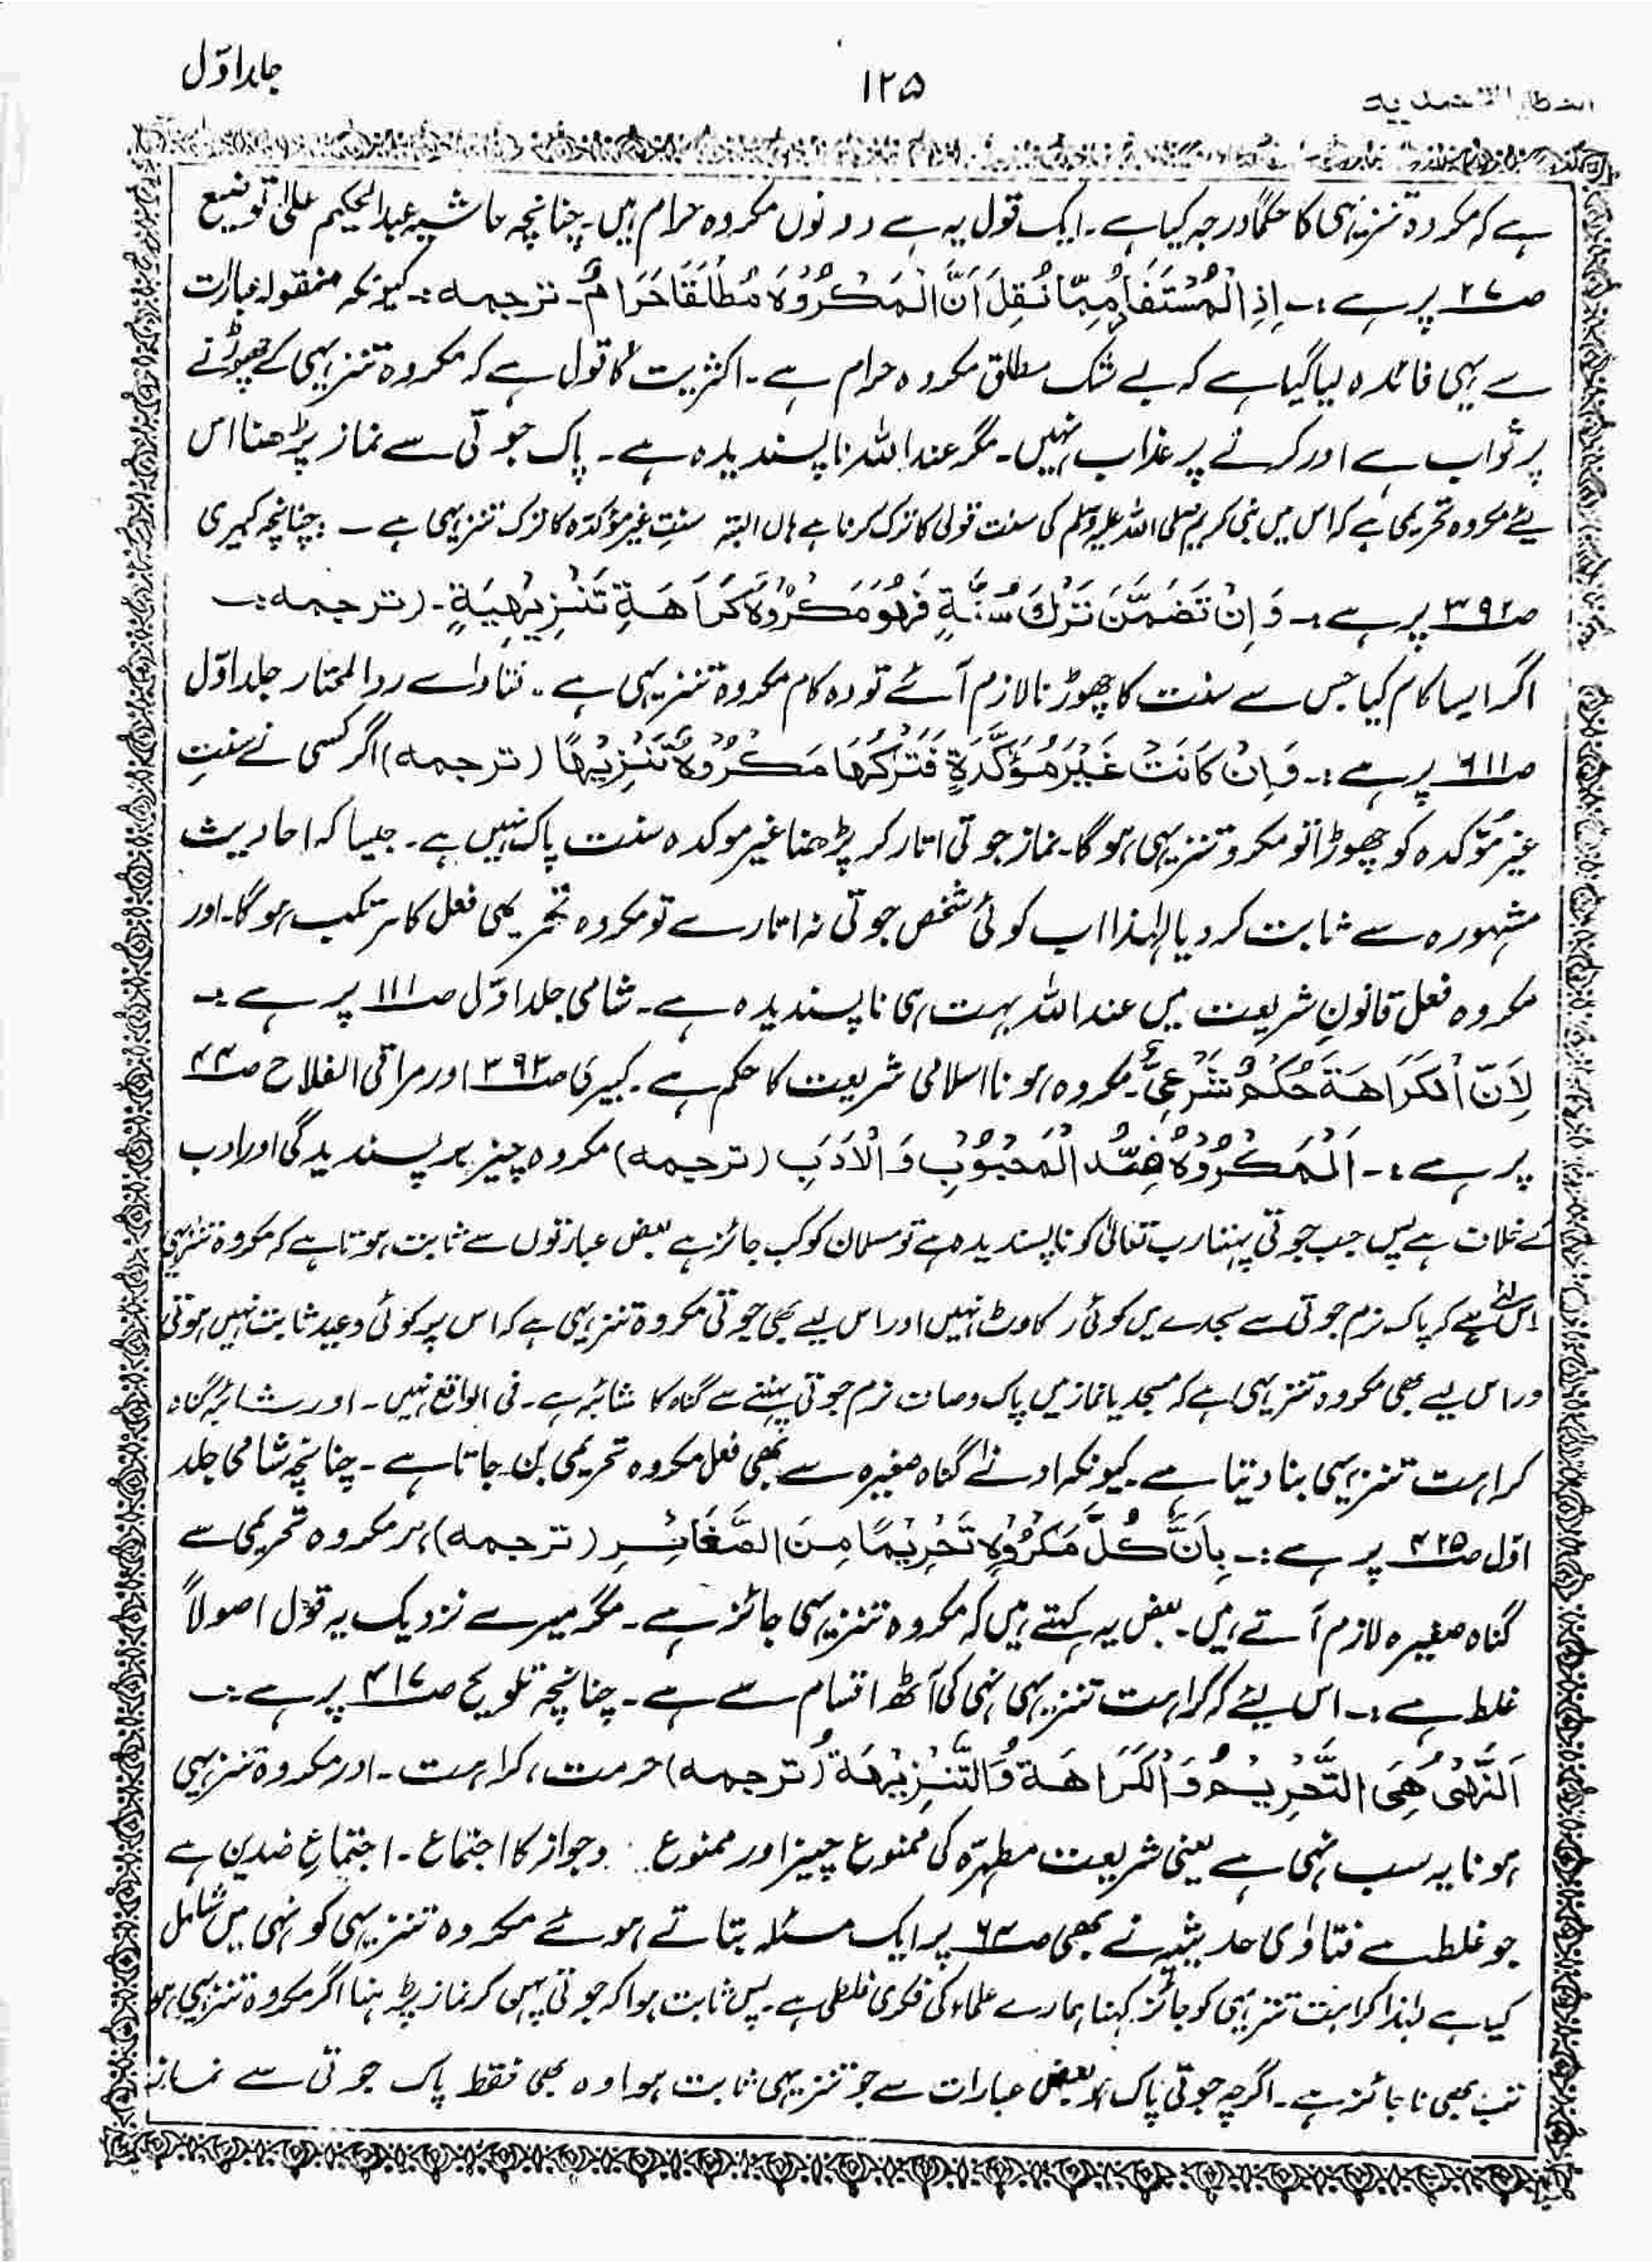 جلد اوّل
۱۲۵
ہے کہ مکروہ تنزیہی کا حکماً درجہ کیا ہے۔ ایک قول یہ ہے دونوں مکروہ حرام ہیں۔ چنانچہ حاشیہ عبدالحکیم علیٰ توضیح
صـ۲۷ پر ہے:۔ اِذِ الْمُسْتَفَادُ مِمَّا نُقِلَ اَنَّ الْمَكْرُوْهَ مُطْلَقًا حَرَامٌ۔ ترجمہ:۔ کیونکہ منقولہ عبارت
سے یہی فائدہ لیا گیا ہے کہ بے شک مطلق مکروہ حرام ہے۔ اکثریت کا قول ہے کہ مکروہ تنزیہی کے چھوڑنے
پر ثواب ہے اور کرنے پر عذاب نہیں۔ مگر عنداللہ ناپسندیدہ ہے۔ پاک جوتی سے نماز پڑھنا اس
لیے مکروہ تحریمی ہے کہ اس میں نبی کریم صلی اللہ علیہ وسلم کی سنت قولی کا ترک کرنا ہے ہاں البتہ سنتِ غیر مؤکدہ کا ترک تنزیہی ہے ۔ چنانچہ کبیری
صـ۳۹۲ پر ہے:۔ وَاِنْ تَضَمَّنَ تَرْكَ سُنَّةٍ فَهُوَ مَكْرُوْهٌ كَرَاهَةٍ تَنْزِيْهِيَةٍ۔ (ترجمہ:۔
اگر ایسا کام کیا جس سے سنت کا چھوڑنا لازم آئے تو وہ کام مکروہ تنزیہی ہے۔ فتاواے ردالمحتار جلد اوّل
صـ۶۱۱ پر ہے:۔ وَاِنْ كَانَتْ غَيْرَ مُؤَكَّدَةٍ فَتَرْكُهَا مَكْرُوْهٌ تَنْزِيْهًا (ترجمہ) اگر کسی نے سنتِ
غیر مؤکدہ کو چھوڑا تو مکروہ تنزیہی ہوگا۔ نماز جوتی اتار کر پڑھنا غیر موکدہ سنت پاک نہیں ہے۔ جیسا کہ احادیث
مشہورہ سے ثابت کر دیا لہٰذا اب کوئی شخص جوتی نہ اتارے تو مکروہ تحریمی فعل کا مرتکب ہوگا۔ اور
مکروہ فعل قانونِ شریعت میں عنداللہ بہت ہی ناپسندیدہ ہے۔ شامی جلد اوّل صـ۱۱۱ پر ہے:۔
لِاَنَّ الْكَرَاهَةَ حُكْمٌ شَرْعِيٌّ۔ مکروہ ہونا اسلامی شریعت کا حکم ہے۔ کبیری صـ۳۹۳ اور مراقی الفلاح صـ۴۴
پر ہے:۔ اَلْمَكْرُوْهُ ضِدُّ الْمَحْبُوْبِ وَالْاَدَبِ (ترجمہ) مکروہ چیز ہر پسندیدگی اور ادب
کے خلاف ہے پس جب جوتی پہننا رب تعالیٰ کو ناپسندیدہ ہے تو مسلمان کو کب جائز ہے بعض عبارتوں سے ثابت ہوتا ہے کہ مکروہ تنزیہی
اس لئے ہے کہ پاک نرم جوتی سے سجدے میں کوئی رکاوٹ نہیں اور اس لیے بھی جوتی مکروہ تنزیہی ہے کہ اس پر کوئی وعید ثابت نہیں ہوتی
اور اس لیے بھی مکروہ تنزیہی ہے کہ مسجد یا نماز میں پاک و صاف نرم جوتی پہننے سے گناہ کا شائبہ ہے۔ فی الواقع نہیں۔ اور شائبۂ گناہ
کراہت تنزیہی بنا دیتا ہے۔ کیونکہ ادنےٰ گناہ صغیرہ سے بھی فعل مکروہ تحریمی بن جاتا ہے۔ چنانچہ شامی جلد
اوّل صـ۴۲۵ پر ہے:۔ بِاَنَّ كُلَّ مَكْرُوْهٍ تَحْرِيْمًا مِنَ الصَّغَائِرِ (ترجمہ) ہر مکروہ تحریمی سے
گناہ صغیرہ لازم آتے ہیں۔ بعض یہ کہتے ہیں کہ مکروہ تنزیہی جائز ہے۔ مگر میرے نزدیک یہ قول اصولاً
غلط ہے:۔ اس لیئے کہ کراہت تنزیہی نہی کی آٹھ اقسام سے ہے۔ چنانچہ تلویح صـ۴۱۷ پر ہے:۔
اَلنَّهْىُ هِىَ التَّحْرِيْمُ وَالْكَرَاهَةُ وَالتَّنْزِيْهَةُ (ترجمہ) حرمت، کراہت۔ اور مکروہ تنزیہی
ہونا یہ سب نہی ہے یعنی شریعت مطہرّہ کی ممنوع چیز اور ممنوع وجواز کا اجتماع۔ اجتماعِ ضدین ہے
جو غلط ہے فتاوٰی حدیثیہ نے بھی صـ۶۳ پر ایک مسئلہ بتاتے ہوئے مکروہ تنزیہی کو نہی میں شامل
کیا ہے لہٰذا کراہت تنزیہی کو جائز کہنا ہمارے علماء کی فکری غلطی ہے۔ پس ثابت ہوا کہ جوتی پہن کر نماز پڑھنا اگر مکروہ تنزیہی ہو
تب بھی ناجائز ہے۔ اگرچہ جوتی پاک ہو بعض عبارات سے جو تنزیہی ثابت ہوا وہ بھی فقط پاک جوتی سے نماز